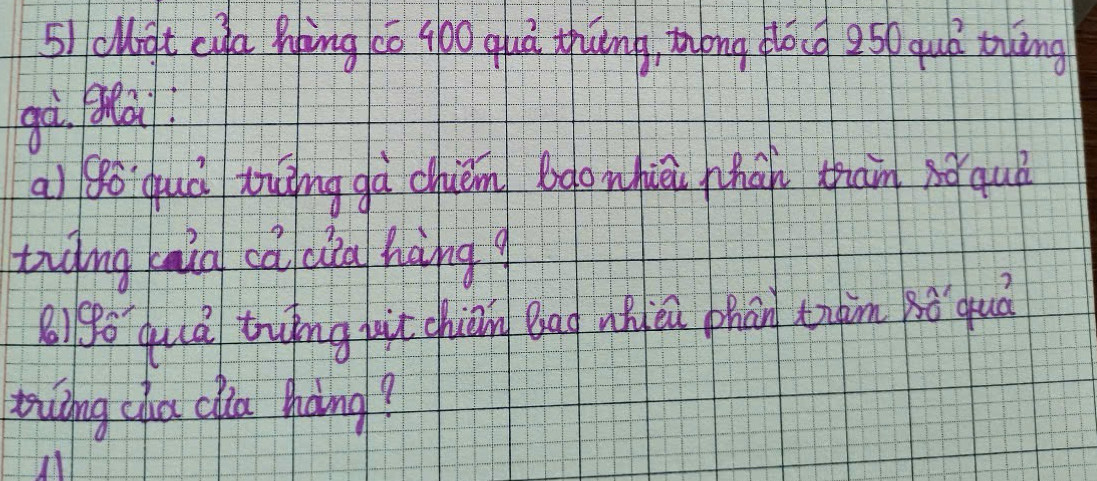 5) Một cửa hàng có 400 quả trứng, trong đó có 250 quả trứng
gà. Hỏi :
a) Số quả trứng gà chiếm bao nhiêu phần trăm số quả
trứng của cả cửa hàng ?
b) Số quả trứng vịt chiếm bao nhiêu phần trăm số quả
trứng của cửa hàng ?